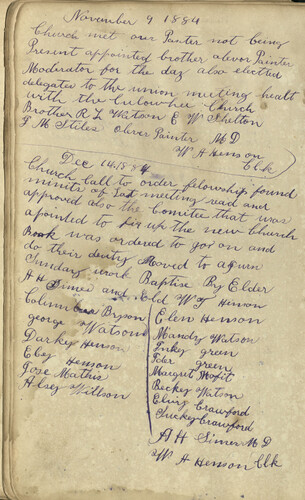 November 9 1884
Church met our Paster not being
Present appointed brother olever Painter
Moderator for the day also elected
delegates to the union meeting healt
with the Cullowhee Church
Brother R L Watson E W Shelton
J M Stiles Oliver Painter M D
W A Henson
Clk
Dec 14 1884
Church Call to order fellowship found
minits of last meeting read and
approved also the Comitee that was
apointed to fix up the new Church
Book was ordered to go on and
do their deuty Moved to ajurn
Sunday work Baptise By Elder
A H Simes and Eld W J Henson
Columbus Bryson
george Watson
Darkey Henson
Ebey Henson
Jose Mathis
Alsey Willson
Elen Henson
Mandy Watson
Inkey green
Ider green
Margret Hopit
Beckey Watson
Elviry Crawford
Suckey Crawford
A H Simes M D
W A Henson Clk